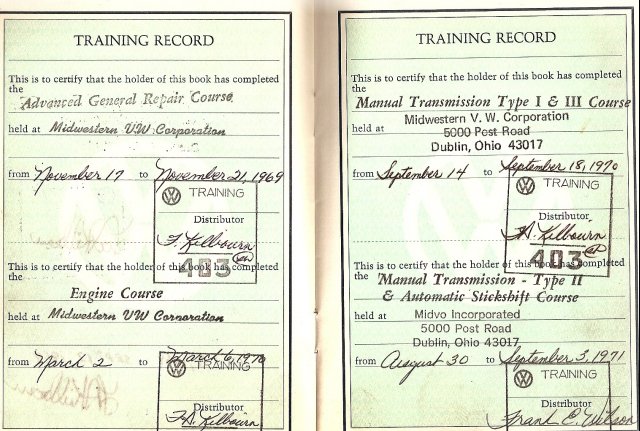 TRAINING RECORD
This is to certify that the holder of this book has completed
the
Advanced General Repair Course
held at Midwestern VW Corporation
from November 17 to November 21, 1969
VW TRAINING
Distributor
F. Kilbourn
403
This is to certify that the holder of this book has completed
the
Engine Course
held at Midwestern VW Corporation
from March 2 to March 6, 1970
VW TRAINING
Distributor
F.A. Kilbourn
TRAINING RECORD
This is to certify that the holder of this book has completed
the
Manual Transmission Type I & III Course
held at Midwestern V. W. Corporation
5000 Post Road
Dublin, Ohio 43017
from September 14 to September 18, 1970
VW TRAINING
Distributor
F.A. Kilbourn
403
This is to certify that the holder of this book has completed
the
Manual Transmission - Type II
& Automatic Stickshift Course
held at Midvo Incorporated
5000 Post Road
Dublin, Ohio 43017
from August 30 to September 3, 1971
VW TRAINING
Distributor
Frank E. Wilson